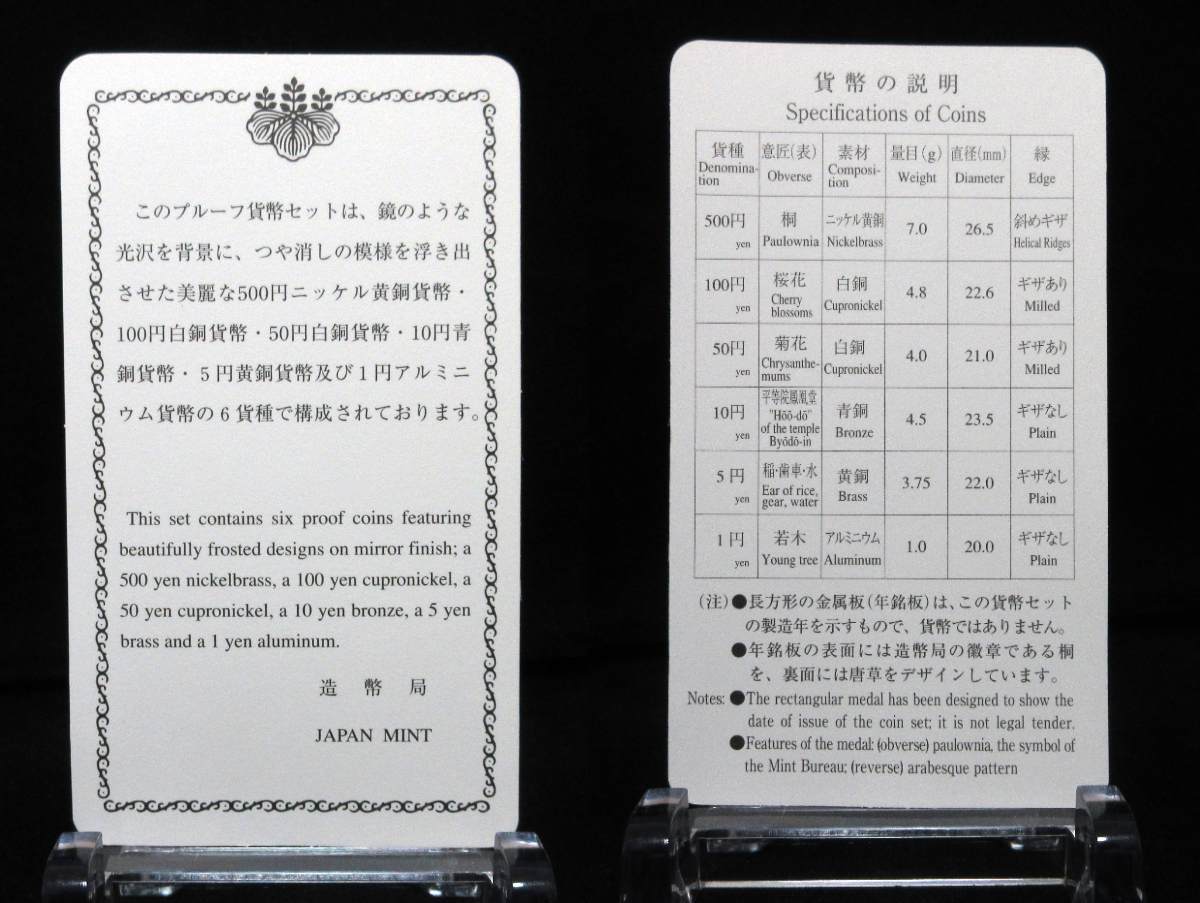 このプルーフ貨幣セットは、鏡のような
光沢を背景に、つや消しの模様を浮き出
させた美麗な500円ニッケル黄銅貨幣・
100円白銅貨幣・50円白銅貨幣・10円青
銅貨幣・5円黄銅貨幣及び1円アルミニ
ウム貨幣の6貨種で構成されております。
This set contains six proof coins featuring
beautifully frosted designs on mirror finish; a
500 yen nickelbrass, a 100 yen cupronickel, a
50 yen cupronickel, a 10 yen bronze, a 5 yen
brass and a 1 yen aluminum.
造幣局
JAPAN MINT
貨幣の説明
Specifications of Coins
貨種 意匠(表) 素材 量目(g) 直径(mm) 縁
Denomina-tion Obverse Composi-tion Weight Diameter Edge
500円 桐 ニッケル黄銅 7.0 26.5 斜めギザ
yen Paulownia Nickelbrass Helical Ridges
100円 桜花 白銅 4.8 22.6 ギザあり
yen Cherry blossoms Cupronickel Milled
50円 菊花 白銅 4.0 21.0 ギザあり
yen Chrysanthe-mums Cupronickel Milled
10円 平等院鳳凰堂 青銅 4.5 23.5 ギザなし
yen "Hōō-dō" of the temple Byōdō-in Bronze Plain
5円 稲・歯車・水 黄銅 3.75 22.0 ギザなし
yen Ear of rice, gear, water Brass Plain
1円 若木 アルミニウム 1.0 20.0 ギザなし
yen Young tree Aluminum Plain
(注)●長方形の金属板(年銘板)は、この貨幣セット
の製造年を示すもので、貨幣ではありません。
●年銘板の表面には造幣局の徽章である桐
を、裏面には唐草をデザインしています。
Notes: ●The rectangular medal has been designed to show the
date of issue of the coin set; it is not legal tender.
●Features of the medal: (obverse) paulownia, the symbol of
the Mint Bureau; (reverse) arabesque pattern